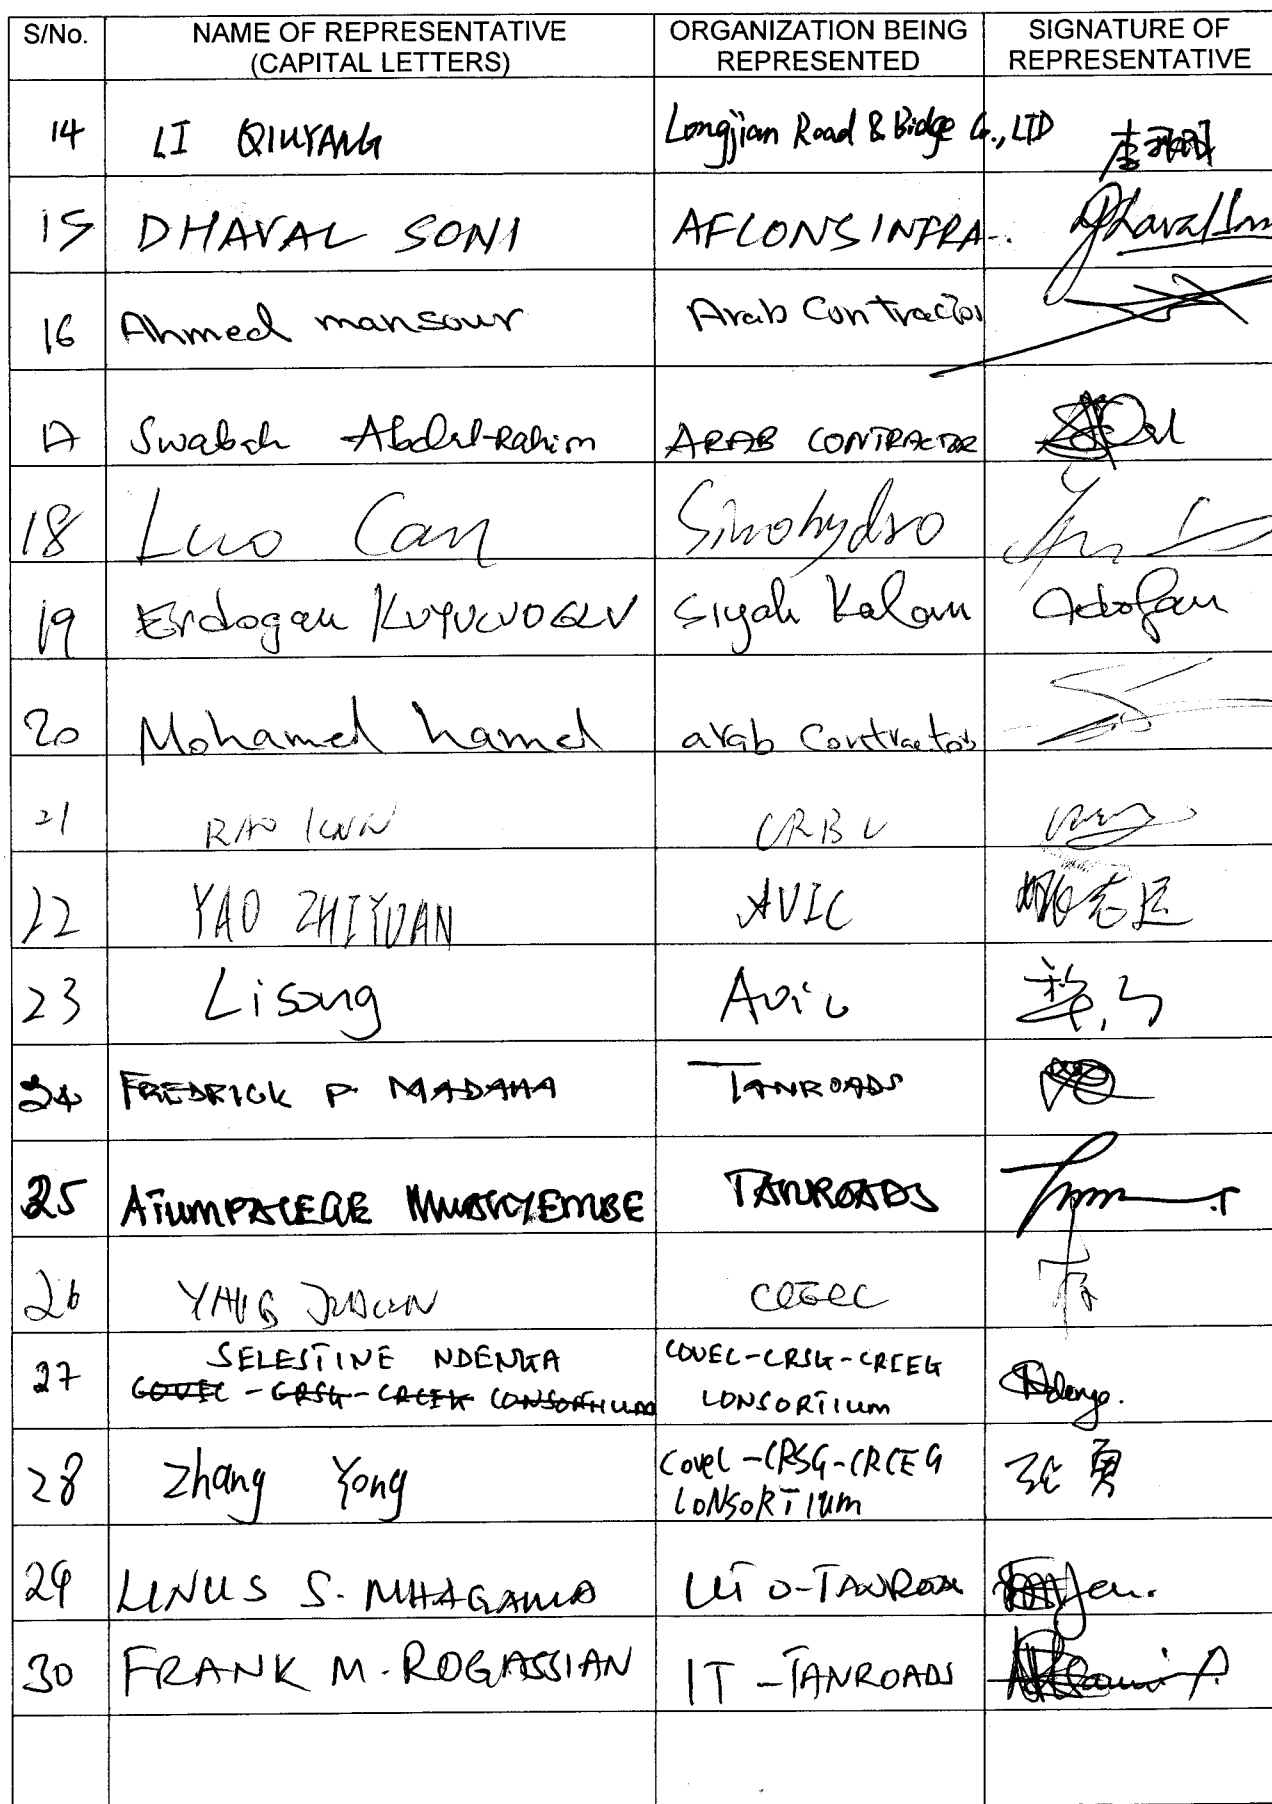 S/No. NAME OF REPRESENTATIVE (CAPITAL LETTERS) ORGANIZATION BEING REPRESENTED SIGNATURE OF REPRESENTATIVE
14 LI QIUYANG Longjian Road & Bidge Co., LTD
15 DHAVAL SONI AFCONS INFRA. Dhaval Soni
16 Ahmed mansour Arab Contractor
17 Swabah Abdul-Rahim ARAB CONTRACTOR
18 Luo Can Sinohydro
19 Erdogan KUYUCUOGLU Siyah Kalem
20 Mohamed hamed arab Contractors
21 RAO CRBC
22 YAO ZHIYUAN AVIC 姚志远
23 Lisong Avic
24 FREDRICK P. MADAHA TANROADS
25 MWAKYEMBE TANROADS
26 YANG
27 SELESTINE NDENGA COVEC-CRSG-CRCEG
COVEC - CRSG - CRCEG CONSORTIUM CONSORTIUM Ndenga.
28 Zhang Yong Covec-CRSG-CRCEG 张勇
CONSORTIUM
29 LINUS S. MHAGAMA
30 FRANK M. ROGASSIAN IT - TANROADS